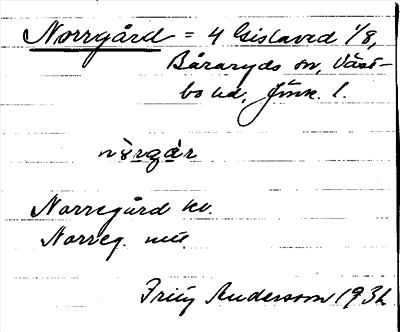 Norrgård = 4 Gislaved 1/8,
Båraryds sn, Väst-
bo hd, Jönk. l.
Norregård kv.
Norreg.
Fritz Andersson 1932